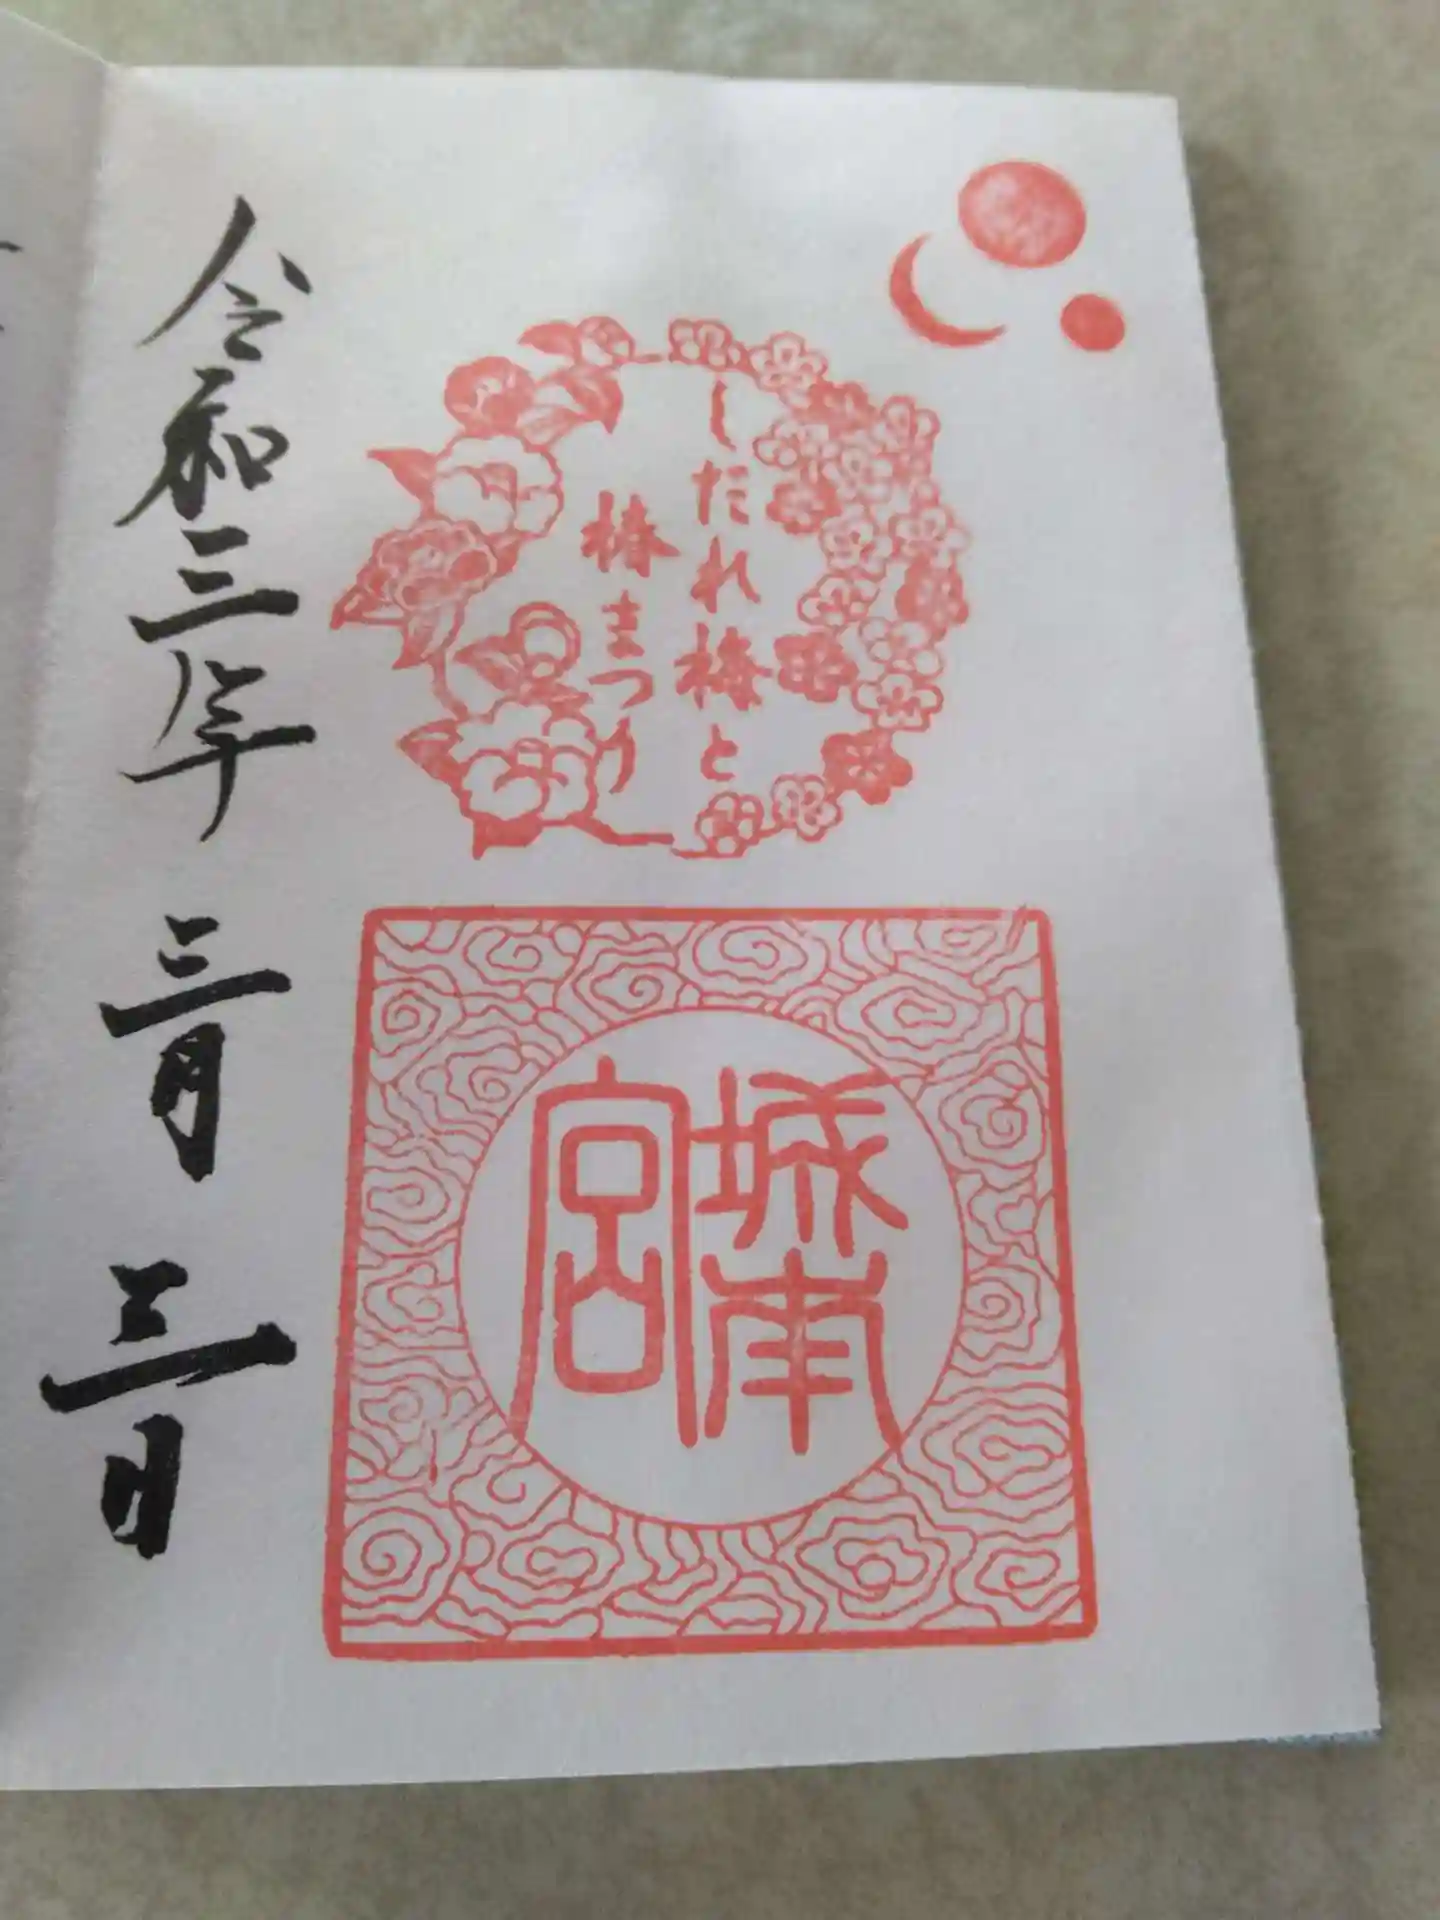 しだれ梅と
椿まつり
城南
宮
令和三年三月三日